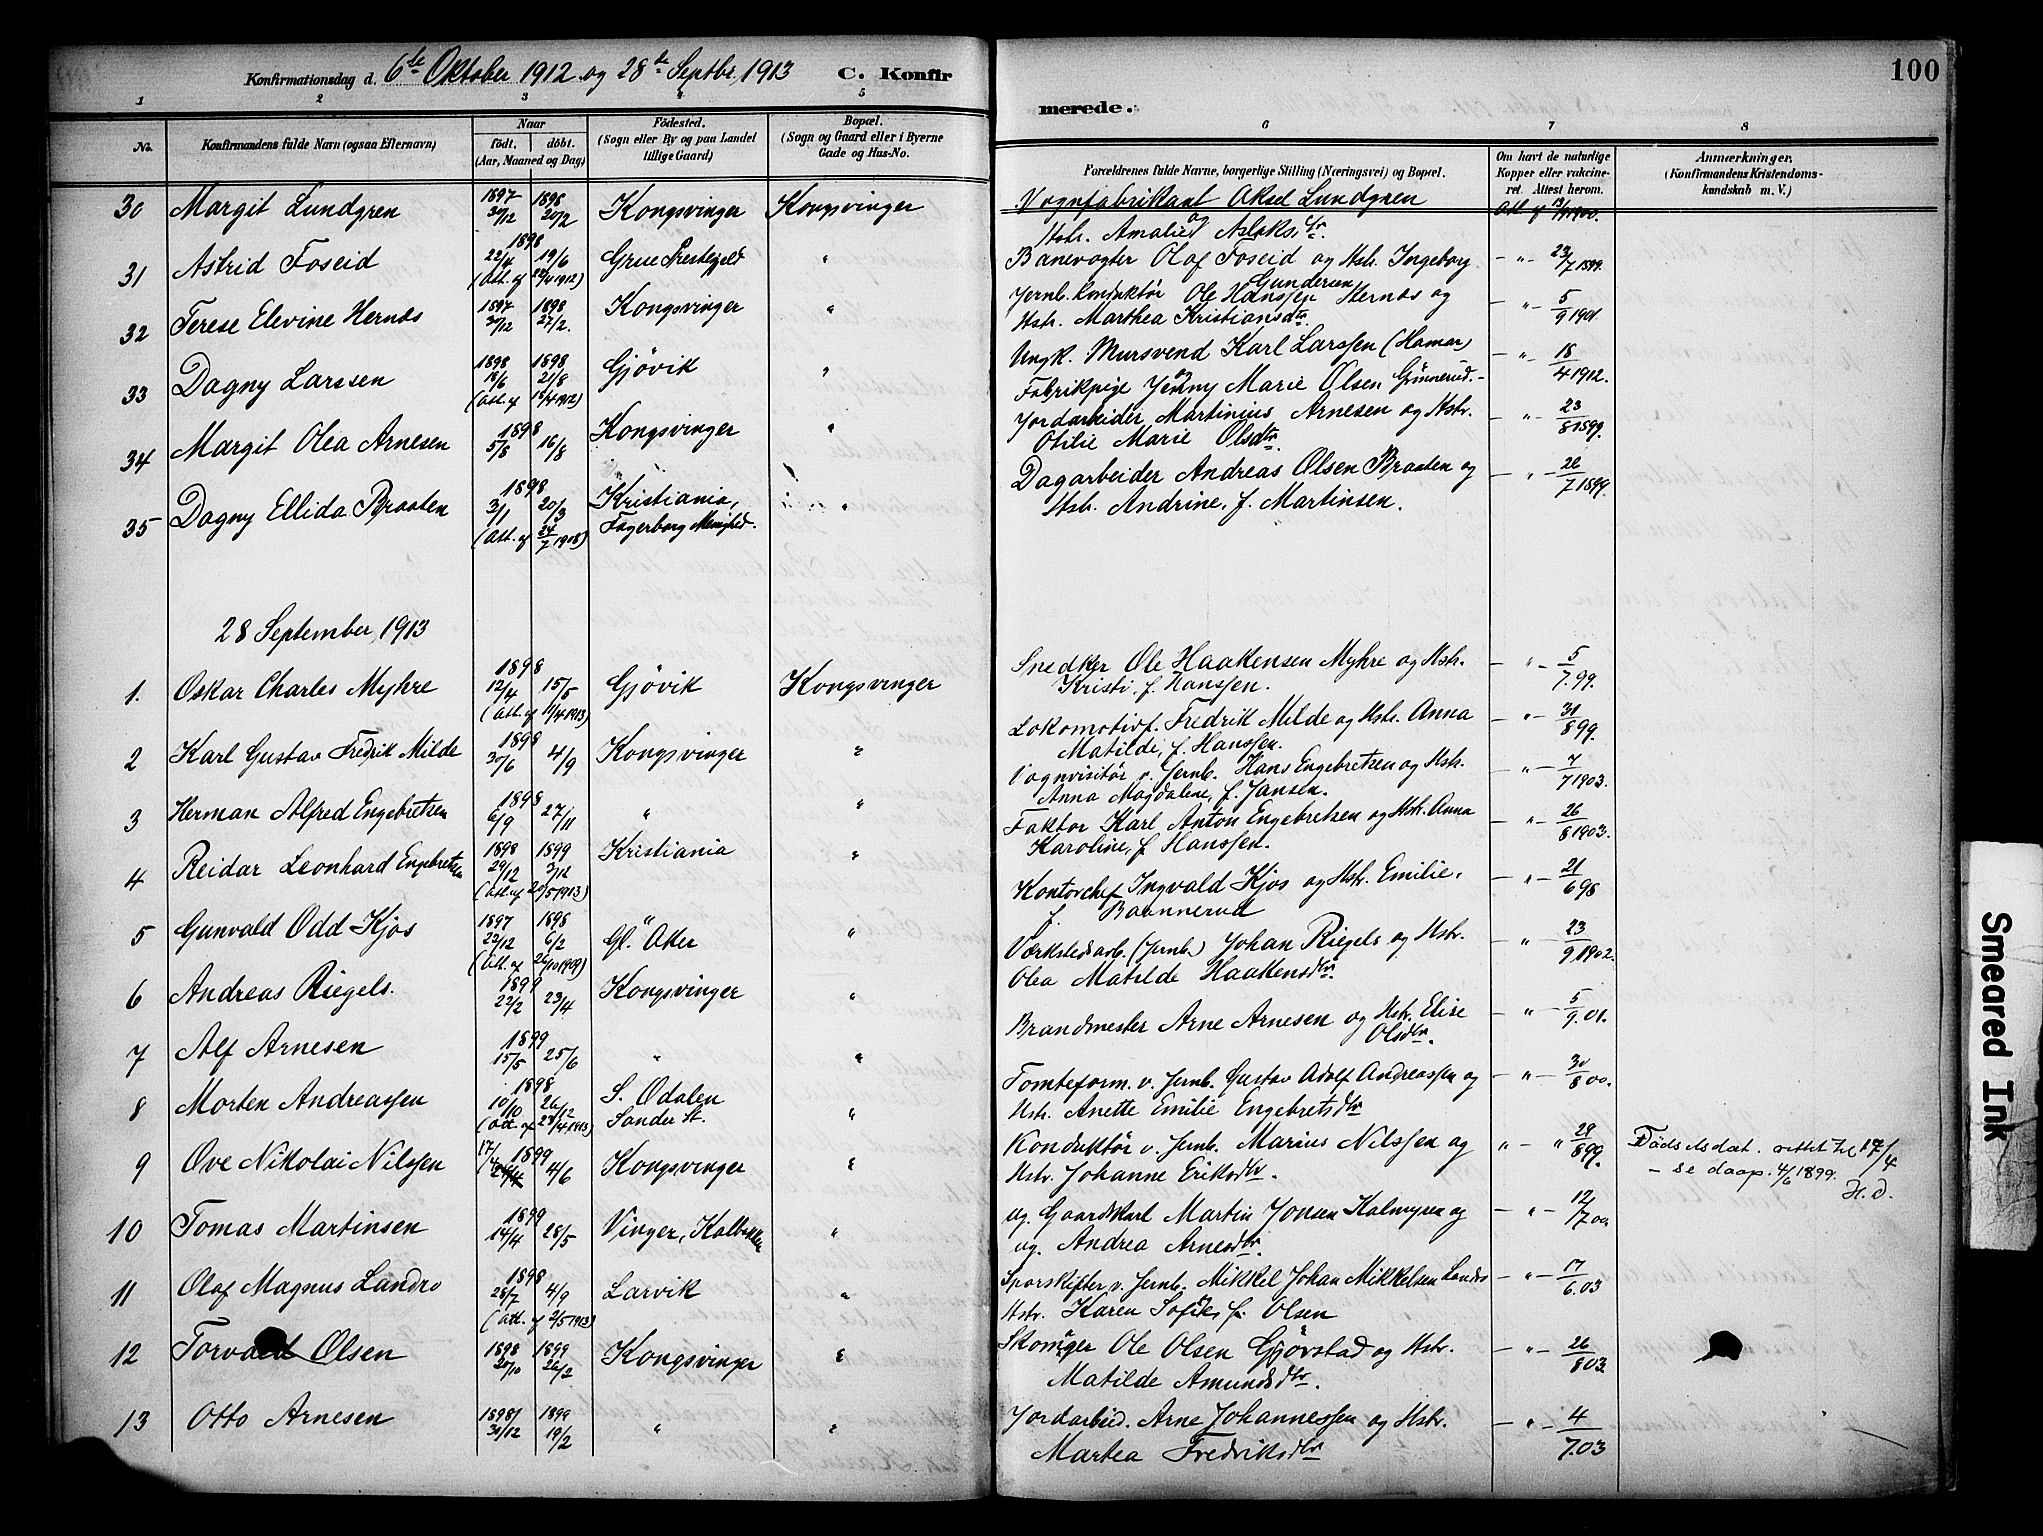 Konfirmationsdag d. 6te Oktober 1912 og 28de Septbr. 1913 C. Konfir
merede. 100
1 2 3 4 5 6 7 8
No. Konfirmandens fulde Navn (ogsaa Efternavn) Naar födt. döbt. (Aar, Maaned og Dag) Födested. (Sogn eller By og paa Landet tillige Gaard) Bopæl. (Sogn og Gaard eller i Byerne Gade og Hus-No.
Forældrenes fulde Navne, borgerlige Stilling (Næringsvei) og Bopæl. Om havt de naturlige Kopper eller vakcineret. Attest herom. Anmærkninger. (Konfirmandens Kristendomskundskab m. V.)
30 Margit Lundgren 1897 30/12 1898 20/2 Kongsvinger Kongsvinger Vognfabrikant Aksel Lundgren og
Hstr. Amalie Aslaksdtr.
31 Astrid Foseid 1898 22/4 19/6 Grue Prestegjeld " Banevogter Olaf Foseid og Hstr. Ingeborg Gundersen — " — 23/7 1899.
32 Terese Elevine Hernæs 1897 1898 27/2. Kongsvinger " Jernb. konduktör Ole Hanssen Hernæs og
Hstr. Marthea Kristiansdtr. — " — 5/9 1901.
33 Dagny Larssen 1898 18/6 1898 21/8 (Att. af 18/4 1912) Gjövik " Ungk. Mursvend Karl Larssen (Hamar)
Fabrikpige Jenny Marie Olsen Grinnerud. — " — 18/4 1912.
34 Margit Olea Arnesen 1898 5/5 16/8 Kongsvinger " Jordarbeider Martinius Arnesen og Hstr.
Otilie Marie Olsdtr — " — 23/8 1899.
35 Dagny Ellida Braaten 1898 3/1 20/3 (Att. af 24/7 1908) Kristiania, Fagerborg Menighed. " Dagarbeider Andreas Olsen Braaten og
Hstr. Andrine, f. Martinsen. — " — 26/7 1899.
28 September, 1913
1. Oskar Charles Myhre 1898 12/4 15/5 (Att. af 11/4 1913) Gjövik Kongsvinger Snedker Ole Haakensen Myhre og Hstr.
Kristi, f. Hanssen. — " — 5/7.99.
2 Karl Gustav Fredrik Milde 1898 30/6 4/9 Kongsvinger " Lokomotivf. Fredrik Milde og Hstr. Anna
Matilde, f. Hanssen. — " — 31/8 99.
3 Herman Alfred Engebretsen 1898 6/9 27/11 " " Vognvisitör v. Jernb. Hans Engebretsen og Hstr.
Anna Magdalene, f. Jansen. — " — 7/7 1903.
4 Reidar Leonhard Engebretsen 1898 29/12 1899 3/12 (Att. af 20/5 1913) Kristiania " Faktor Karl Anton Engebretsen og Hstr. Anna
Karoline, f. Hanssen. — " — 26/8 1903.
5 Gunvald Odd Kjos 1897 22/12 1898 6/2 (Att. af 26/10 1909) Gl. Aker " Kontorchef Ingvald Kjos og Hstr. Emilie,
f. Baannerud — " — 21/6 98
6 Andreas Riegels. 1899 22/2 23/4 Kongsvinger " Værkstedsarb. (Jernb.) Johan Riegels og Hstr.
Olea Matilde Haakensdtr. — " — 23/9.1902.
7 Alf Arnesen 1899 15/5 25/6 " " Brandmester Arne Arnesen og Hstr. Elise
Olsdtr. — " — 5/9.01.
8 Morten Andreassen 1898 10/10 26/12 (Att. af 23/4 1913) S. Odalen Sander St. " Tomteform. v. Jernb. Gustav Adolf Andreassen og
Hstr. Anette Emilie Engebretsdtr — " — 30/8 00.
9 Ove Nikolai Nilssen 17/4 1899 4/6 Kongsvinger " Konduktör v. Jernb. Marius Nilssen og
Hstr. Johanne Eriksdtr. " — " 29/8 99. Födselsdat. rettet til 17/4
— se daap. 4/6 1899.
H.d.
10 Tomas Martinsen 1899 14/4 28/5 Vinger, " ug. Gaardskarl Martin Johan Kalmyren og
ug. Andrea Arnesdtr. — " — 12/7 00.
11 Olaf Magnus Landrö 1898 28/7 4/9 (Att. af 2/5 1913) Larvik " Sporskifter v. Jernb. Mikkel Johan Mikkelsen
Hstr. Karen Sofie, f. Olsen — " — 17/6.03
12 Torvald Olsen 1898 20/10 1899 26/2 Kongsvinger " Skom̄ger Ole Olsen Gjörstad og Hstr.
Matilde Amundsdtr. — " — 26/8 03.
13 Otto Arnesen 1898 30/12 1899 19/2 " " Jordarbeid. Arne Johannessen og Hstr.
Martea Fredriksdtr — " — 4/7.03
Smeared Ink